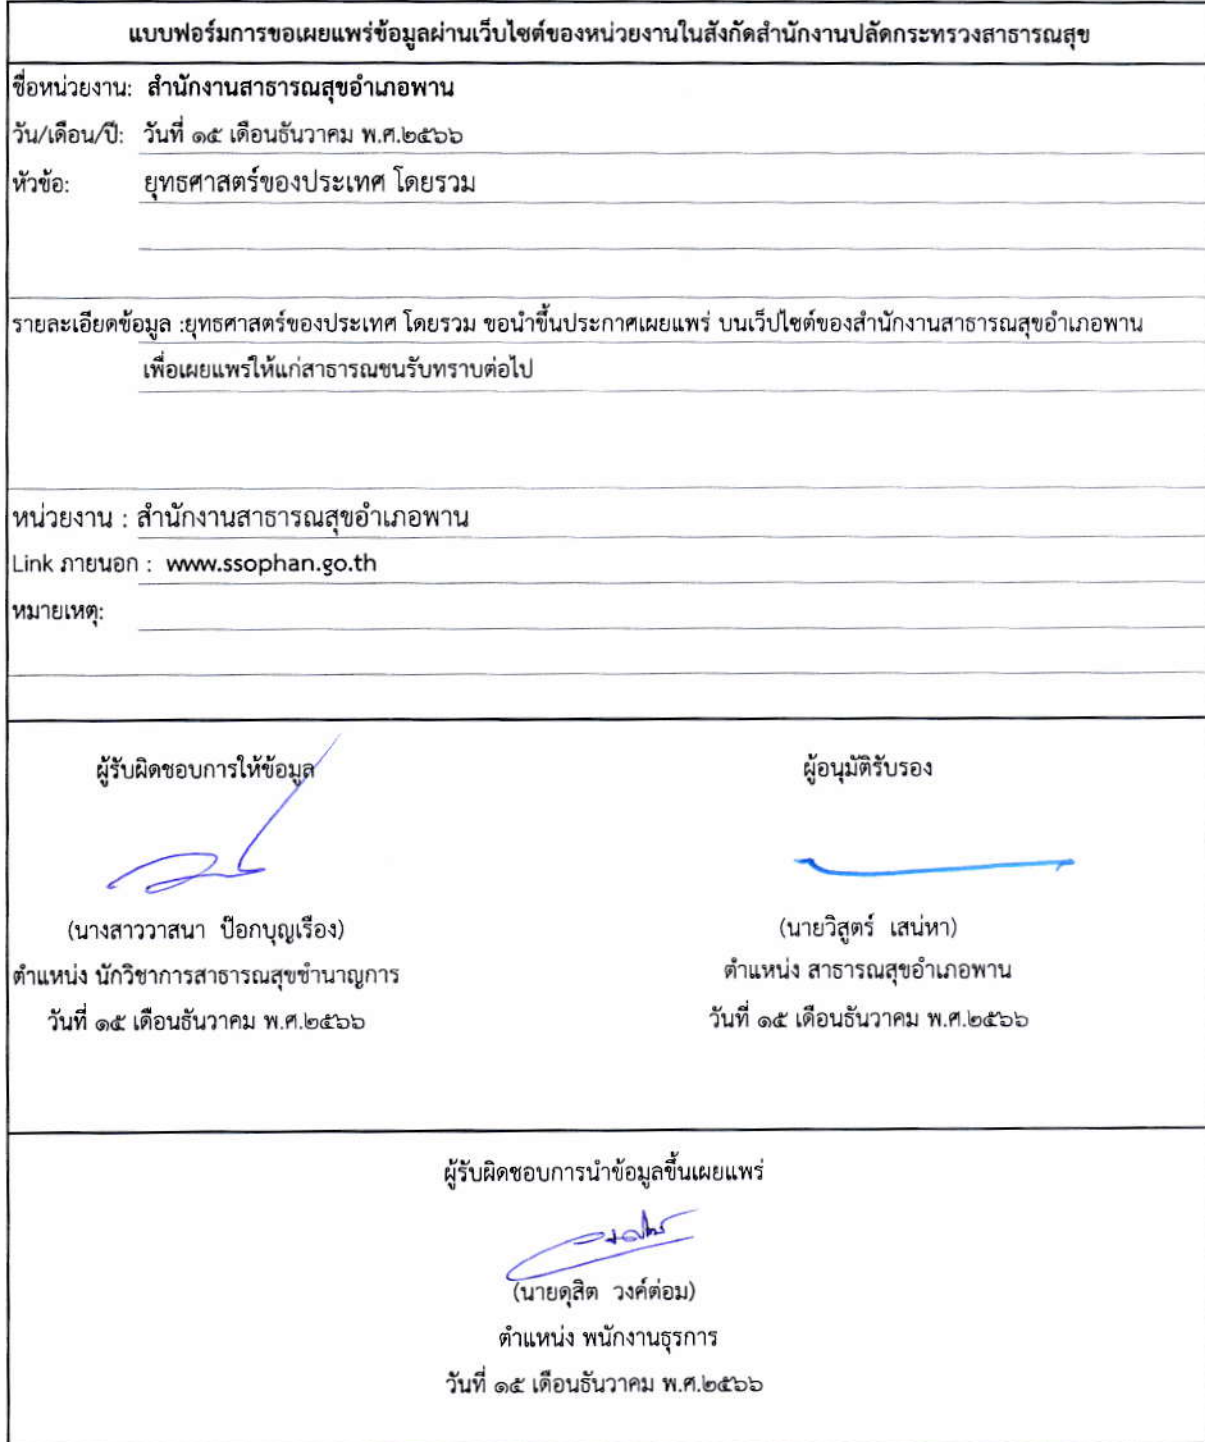 แบบฟอร์มการขอเผยแพร่ข้อมูลผ่านเว็บไซต์ของหน่วยงานในสังกัดสำนักงานปลัดกระทรวงสาธารณสุข
ชื่อหน่วยงาน: สำนักงานสาธารณสุขอำเภอพาน
วัน/เดือน/ปี: วันที่ ๑๕ เดือนธันวาคม พ.ศ.๒๕๖๖
หัวข้อ: ยุทธศาสตร์ของประเทศ โดยรวม
รายละเอียดข้อมูล :ยุทธศาสตร์ของประเทศ โดยรวม ขอนำขึ้นประกาศเผยแพร่ บนเว็ปไซต์ของสำนักงานสาธารณสุขอำเภอพาน
เพื่อเผยแพร่ให้แก่สาธารณชนรับทราบต่อไป
หน่วยงาน : สำนักงานสาธารณสุขอำเภอพาน
Link ภายนอก : www.ssophan.go.th
หมายเหตุ:
ผู้รับผิดชอบการให้ข้อมูล
(นางสาววาสนา ป๊อกบุญเรือง)
ตำแหน่ง นักวิชาการสาธารณสุขชำนาญการ
วันที่ ๑๕ เดือนธันวาคม พ.ศ.๒๕๖๖
ผู้อนุมัติรับรอง
(นายวิสูตร์ เสน่หา)
ตำแหน่ง สาธารณสุขอำเภอพาน
วันที่ ๑๕ เดือนธันวาคม พ.ศ.๒๕๖๖
ผู้รับผิดชอบการนำข้อมูลขึ้นเผยแพร่
(นายดุสิต วงค์ต่อม)
ตำแหน่ง พนักงานธุรการ
วันที่ ๑๕ เดือนธันวาคม พ.ศ.๒๕๖๖